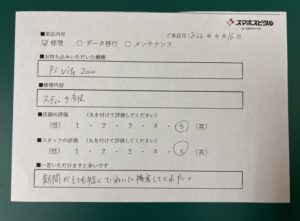 スマホスピタル
■来店内容
ご来店日:2026年4月16日
☑修理 □データ移行 □メンテナンス
■お持ち込みいただいた機種
PS Vita 2000
■修理内容
スティック交換
■店舗の評価 (丸を付けて評価してください)
(低) 1 ・ 2 ・ 3 ・ 4 ・ 5 (高)
■スタッフの評価 (丸を付けて評価してください)
(低) 1 ・ 2 ・ 3 ・ 4 ・ 5 (高)
■一言いただけますと幸いです
期間がとても短くていねいに接客してくれた。